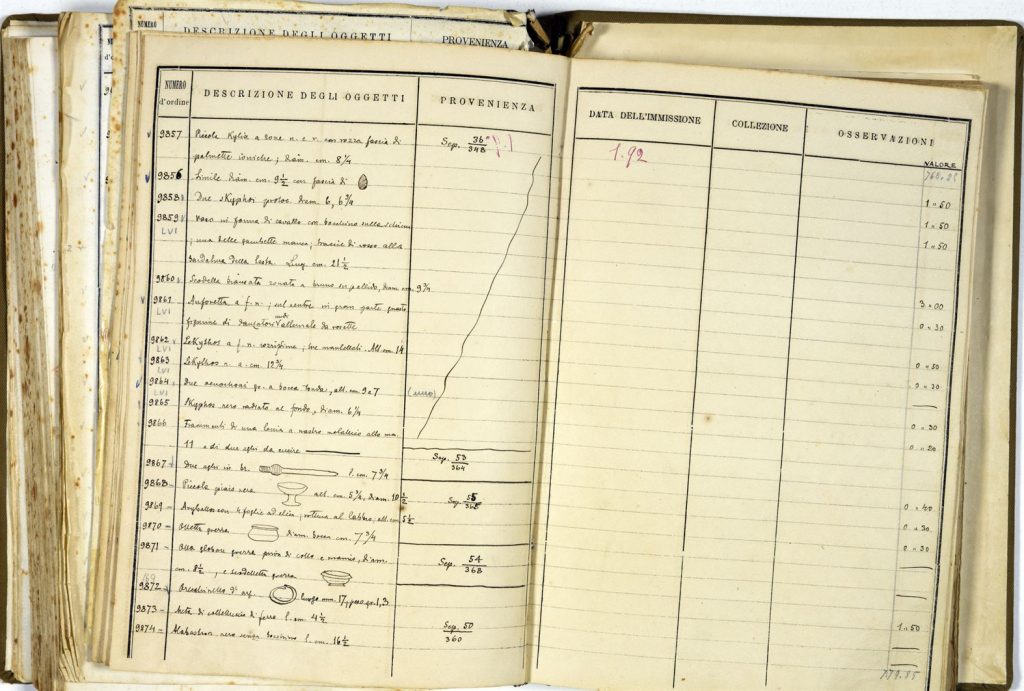 NUMERO
DESCRIZIONE DEGLI OGGETTI
PROVENIENZA
NUMERO d'ordine
DESCRIZIONE DEGLI OGGETTI
PROVENIENZA
DATA DELL'IMMISSIONE
COLLEZIONE
OSSERVAZIONI
VALORE
9857 Piccola Kylix a zone n. e r. con rozza fascia di
palmette ioniche; diam. cm. 8 1/4
Sep. 36/348
1.92
9856 Simile diam. cm. 9 1/2 con fascia di
9858 Due skyphoi protoc. diam. 6, 6 3/4
1 " 50
9859 Vaso in forma di cavallo con bocchino sulla schiena
LVI
1 " 50
; una delle gambette manca; traccie di rosso alla
1 " 50
Lung. cm. 21 1/2
9860 Scodella biancata zonata a bruno diam. cm. 9 3/4
9861 Anforetta a f. n.; sul ventre in gran parte guasto
LVI
3 " 00
figurine di danzatori alternate da rosette
0 " 30
9862 Lekythos a f. n. rozzissima; tre mantellati. Alt. cm. 14
LVI
9863 Lekythos n. a. cm. 12 3/4
LVI
0 " 50
9864 Due oenochoai gr. a bocca tonda, alt. cm 9 e 7
LVI
(uno)
9865 Skyphos nero radiato al fondo, diam. 6 1/4
9866 Frammenti di una lamina a nastro metallico alto mm.
0 " 30
11 e di due aghi da cucire
0 " 20
Sep. 53/364
9867 Due aghi in br. l. cm. 7 3/4
9868 Piccola pisside nera alt. cm. 5 3/4, diam. 10 1/2
Sep. 55/365
9869 Aryballos con 4 foglie ad elica, rottura al labbro, alt. cm. 5 1/2
0 " 40
9870 Olletta grezza diam. bocca cm. 7 3/4
0 " 30
9871 Olla globare grezza priva di collo e manico, diam.
0 " 30
cm. 8 1/2, e scodelletta grezza
Sep. 54/368
9872 Orecchinello d'arg. luogo mm. 17, peso gr. 1,3
9873 Asta di coltelluccio di ferro l. cm. 4 1/2
9874 Alabastron nero senza bocchino l. cm. 16 1/2
Sep. 50/360
1 " 50
779.85